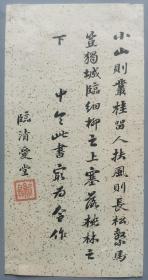 小山則叢桂留人扶風則長松繫馬
豈獨城臨細柳之上塞落桃林之
下 中令此書㝡為合作
臨清愛堂